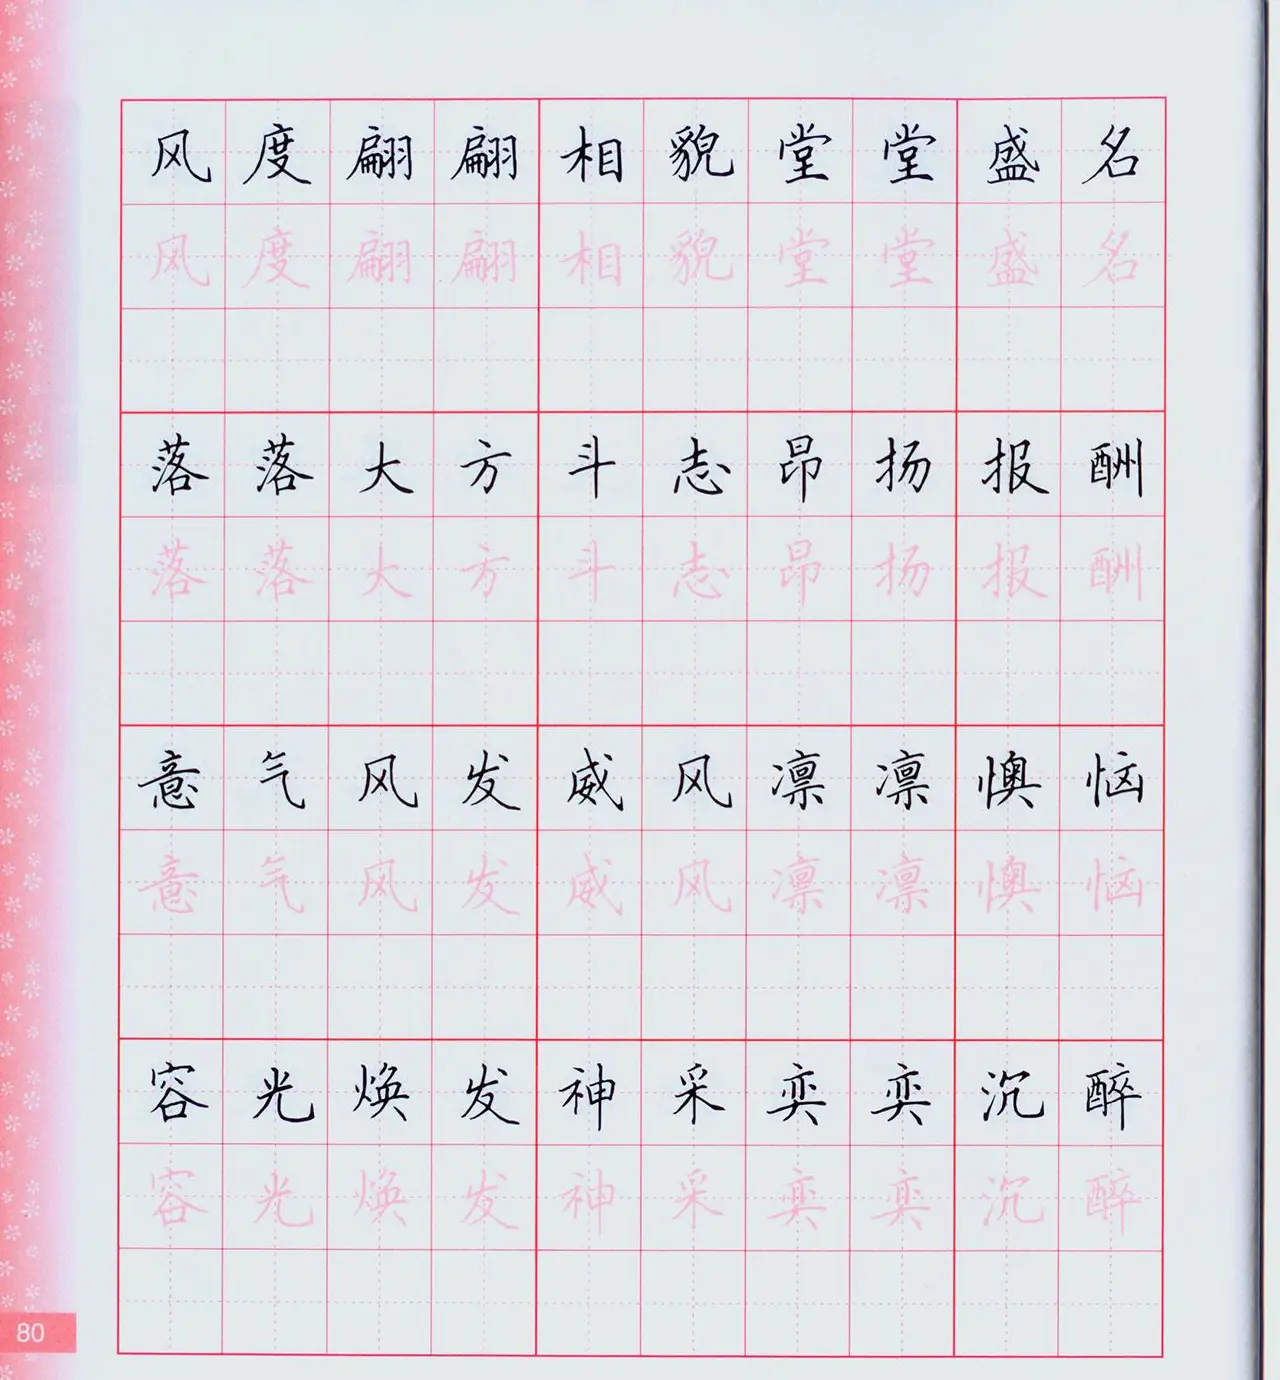 风度翩翩相貌堂堂盛名
风度翩翩相貌堂堂盛名
落落大方斗志昂扬报酬
落落大方斗志昂扬报酬
意气风发威风凛凛懊恼
意气风发威风凛凛懊恼
容光焕发神采奕奕沉醉
容光焕发神采奕奕沉醉
80